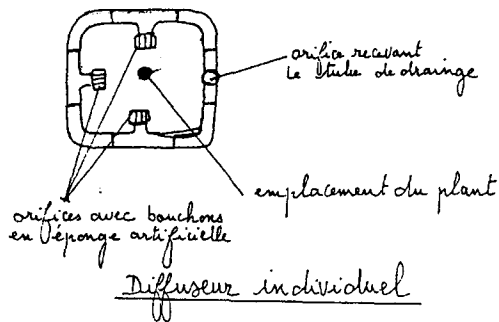 orifice recevant
le tube de drainge
emplacement du plant
orifices avec bouchons
en éponge artificielle
Diffuseur individuel